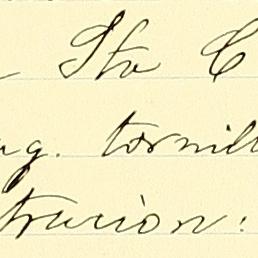 Sto C
ng. tornill
trucion: